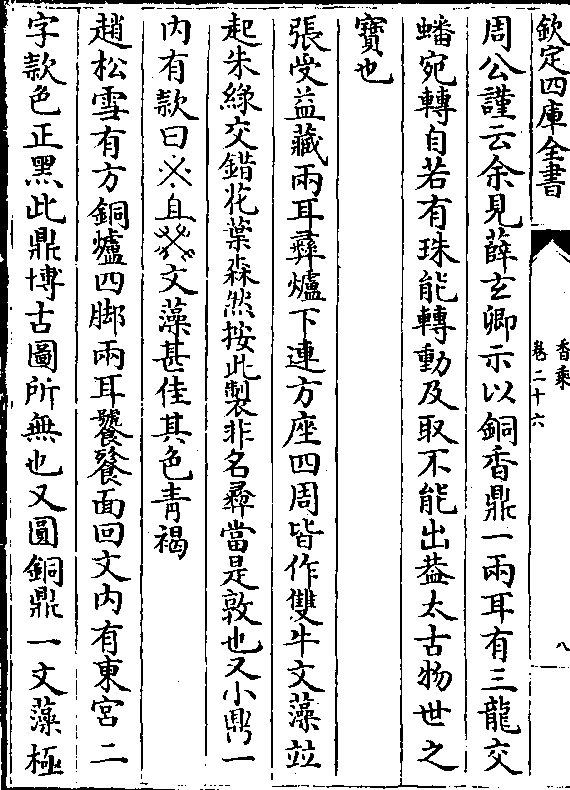 欽定四庫全書
香乘
卷二十六
八
周公謹云余見薛玄卿示以銅香鼎一兩耳有三龍交
蟠宛轉自若有珠能轉動及取不能出葢太古物世之
寳也
張受益藏兩耳彛爐下連方座四周皆作雙牛文藻竝
起朱緑交錯花葉森然按此製非名彛當是敦也又小鼎一
内有款曰 且 文藻甚佳其色青褐
趙松雪有方銅爐四脚兩耳饕餮面回文内有東宫二
字款色正黑此鼎博古圖所無也又圓銅鼎一文藻極